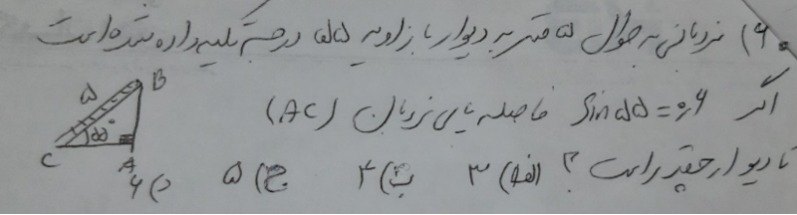 ۶) نردبانی به طول ۵ متر به دیوار با زاویه ۵۵ درجه تکیه داده شده است
اگر Sin ۵۵ = ۰٫۶ فاصله پای نردبان (AC)
تا دیوار چقدر است ؟ الف) ۳ ب) ۴ ج) ۵ د) ۶
B
۵
۵۵°
C
A